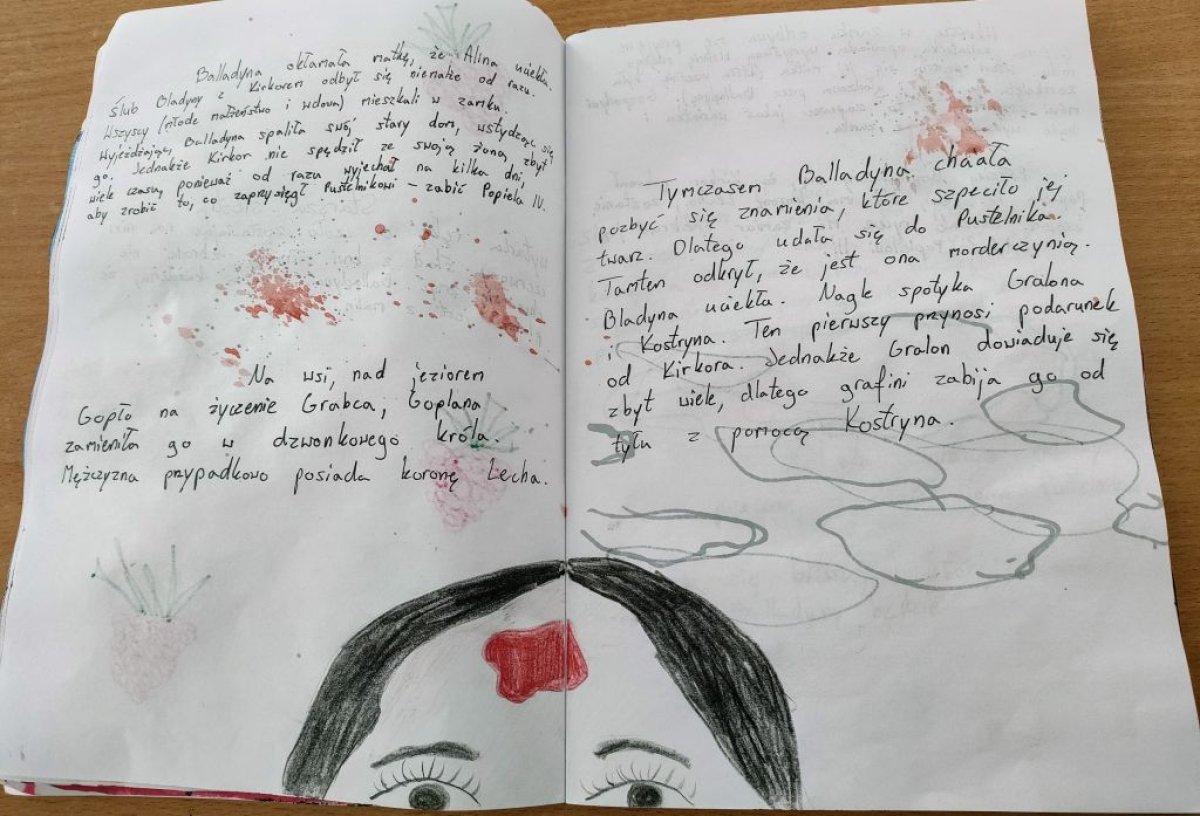 Balladyna okłamała matkę, że Alina uciekła.
Ślub Bladyny z Kirkorem odbył się niemalże od razu.
Wszyscy (młode małżeństwo i wdowa) mieszkali w zamku.
Wyjeżdżając, Balladyna spaliła swój stary dom, wstydząc się
go. Jednakże Kirkor nie spędził ze swoją żoną zbyt
wiele czasu, ponieważ od razu wyjechał na kilka dni,
aby zrobić to, co zaprzysięgł Pustelnikowi – zabić Popiela IV.
Na wsi, nad jeziorem
Gopło na życzenie Grabca, Goplana
zamieniła go w dzwonkowego króla.
Mężczyzna przypadkowo posiada koronę Lecha.
Tymczasem Balladyna chciała
pozbyć się znamienia, które szpeciło jej
twarz. Dlatego udała się do Pustelnika.
Tamten odkrył, że jest ona morderczynią.
Bladyna uciekła. Nagle spotyka Gralona
i Kostryna. Ten pierwszy przynosi podarunek
od Kirkora. Jednakże Gralon dowiaduje się
zbyt wiele, dlatego grafini zabija go od
tyłu z pomocą Kostryna.